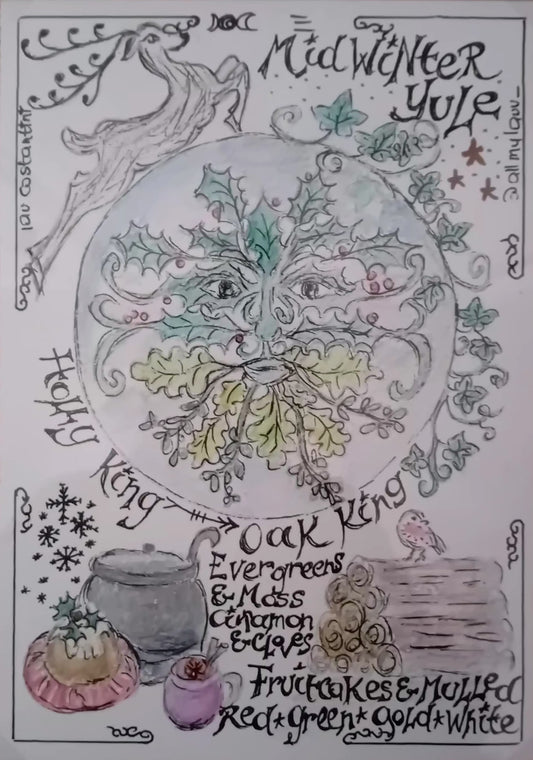 MidWinter
Yule
lau costantini
@allmylauu_
Holly King
Oak King
Evergreens
& Moss
Cinnamon
& Cloves
Fruitcakes & Mulled
Red * Green * Gold * White